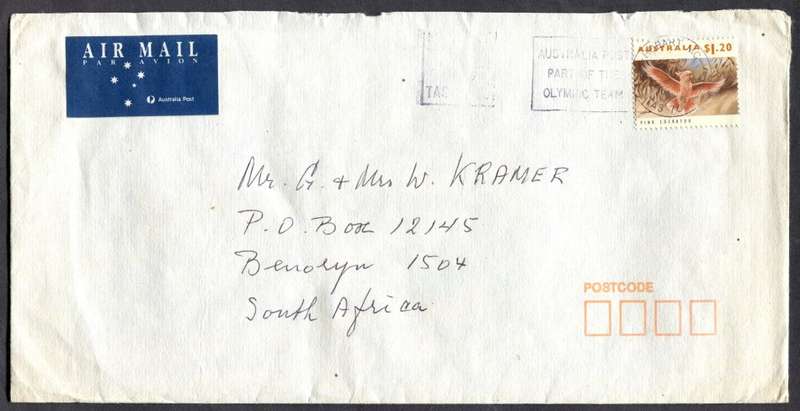 AIR MAIL
PAR AVION
Australia Post
TAS
AUSTRALIA POST
PART OF THE
OLYMPIC TEAM
AUSTRALIA $1.20
PINK COCKATOO
Mr. G. & Mrs W. KRAMER
P.O. Box 12145
Benoryn 1504
South Africa
POSTCODE